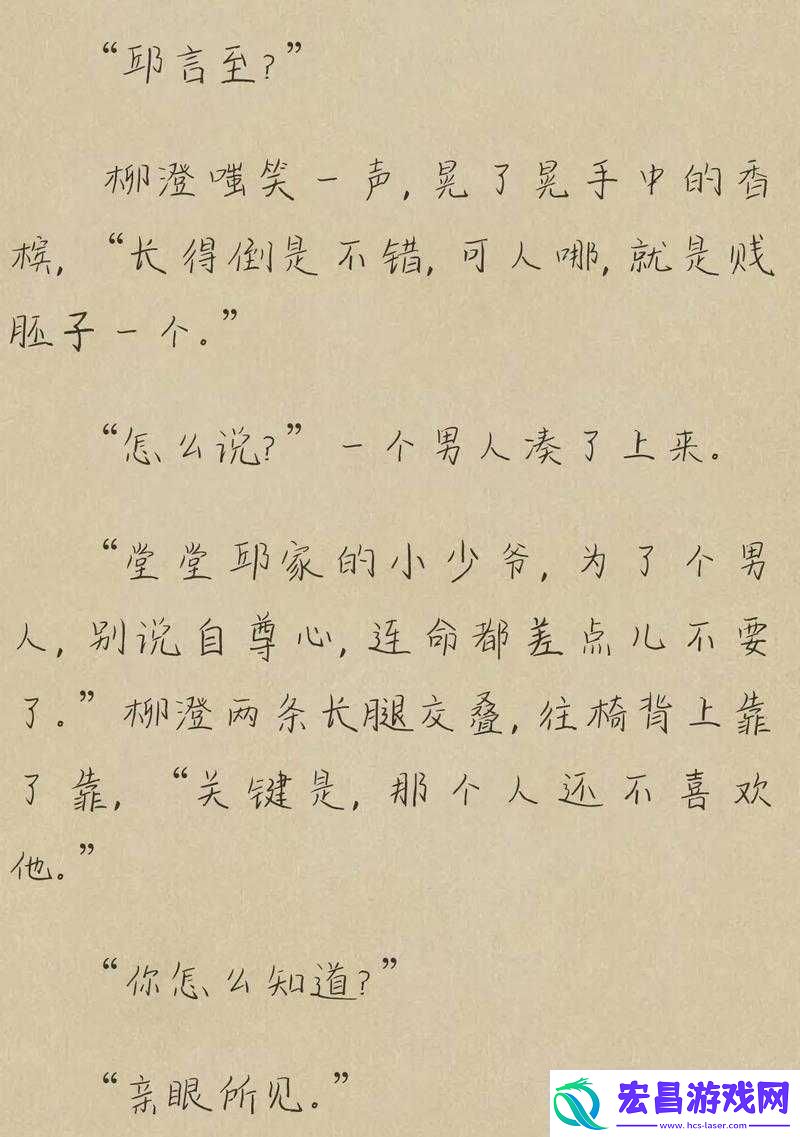 “邱言至?”
柳澄嗤笑一声,晃了晃手中的香
槟,“长得倒是不错,可人哪,就是贱
胚子一个。”
“怎么说?”一个男人凑了上来。
“堂堂邱家的小少爷,为了个男
人,别说自尊心,连命都差点儿不要
了。”柳澄两条长腿交叠,往椅背上靠
了靠,“关键是,那个人还不喜欢
他。”
“你怎么知道?”
“亲眼所见。”
宏昌游戏网
www.hcs-laser.com